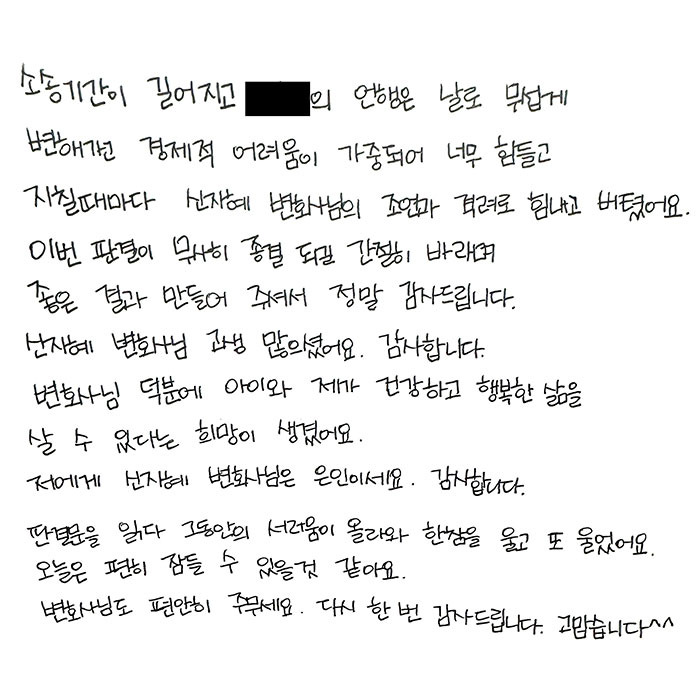 소송기간이 길어지고 의 언행은 날로 무섭게
변해가면 경제적 어려움이 가중되어 너무 힘들고
지칠때마다 신지혜 변호사님의 조언과 격려로 힘내고 버텼어요.
이번 판결이 무사히 종결 되길 간절히 바라며
좋은 결과 만들어 주셔서 정말 감사드립니다.
신지혜 변호사님 고생 많으셨어요. 감사합니다.
변호사님 덕분에 아이와 제가 건강하고 행복한 삶을
살 수 있다는 희망이 생겼어요.
저에게 신지혜 변호사님은 은인이세요. 감사합니다.
판결문을 읽다 그동안의 서러움이 올라와 한참을 울고 또 울었어요.
오늘은 편히 잠들 수 있을것 같아요.
변호사님도 편안히 주무세요. 다시 한 번 감사드립니다. 고맙습니다^^